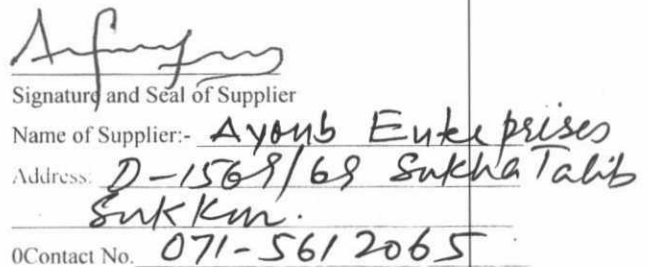 Signature and Seal of Supplier
Name of Supplier:- Ayoub Enterprises
Address: D-1569/69 Sukha Talib
Sukkur.
0Contact No. 071-5612065